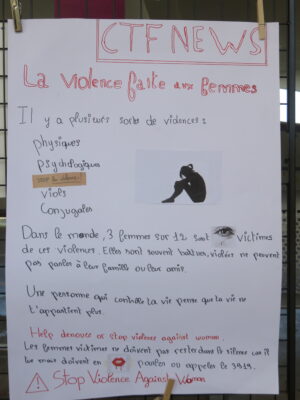 CTF NEWS
La violence faite aux femmes
Il y a plusieurs sorte de violences :
physiques
psychologiques
Viols
Conjugales
Dans le monde, 3 femmes sur 12 sont victimes
de ces violences. Elles sont souvent battues, violées ne peuvent
pas parler à leur famille ou leur amie.
Une personne qui contrôle ta vie pense que ta vie ne
t'appartient plus.
Help denounce or stop violence against woman
Les femmes victimes ne doivent pas rester dans le silence car il
doivent en parler ou appeler le 3919.
Stop Violence Against Woman